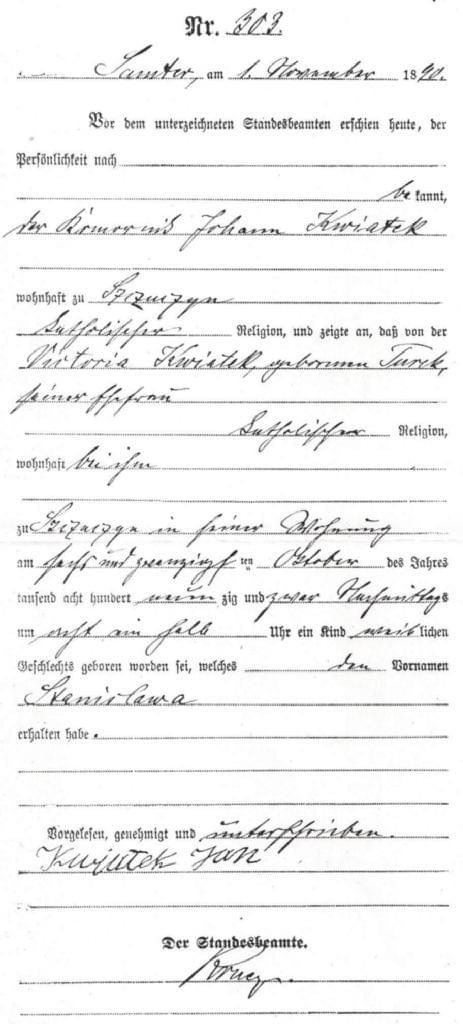 Nr. 303.
Samter, am 1. November 1890.
Vor dem unterzeichneten Standesbeamten erschien heute, der
Persönlichkeit nach
bekannt,
der Komornik Johann Kwiatek
wohnhaft zu Szczuczyn
katholischer Religion, und zeigte an, daß von der
Victoria Kwiatek, geborenen Turek,
seiner Ehefrau
katholischer Religion,
wohnhaft bei ihm
zu Szczuczyn in seiner Wohnung
am sechs und zwanzigsten Oktober des Jahres
tausend acht hundert neunzig und zwar Nachmittags
um acht ein halb Uhr ein Kind weiblichen
Geschlechts geboren worden sei, welches den Vornamen
Stanislawa
erhalten habe.
Vorgelesen, genehmigt und unterschrieben.
Kwjatek Jan
Der Standesbeamte.